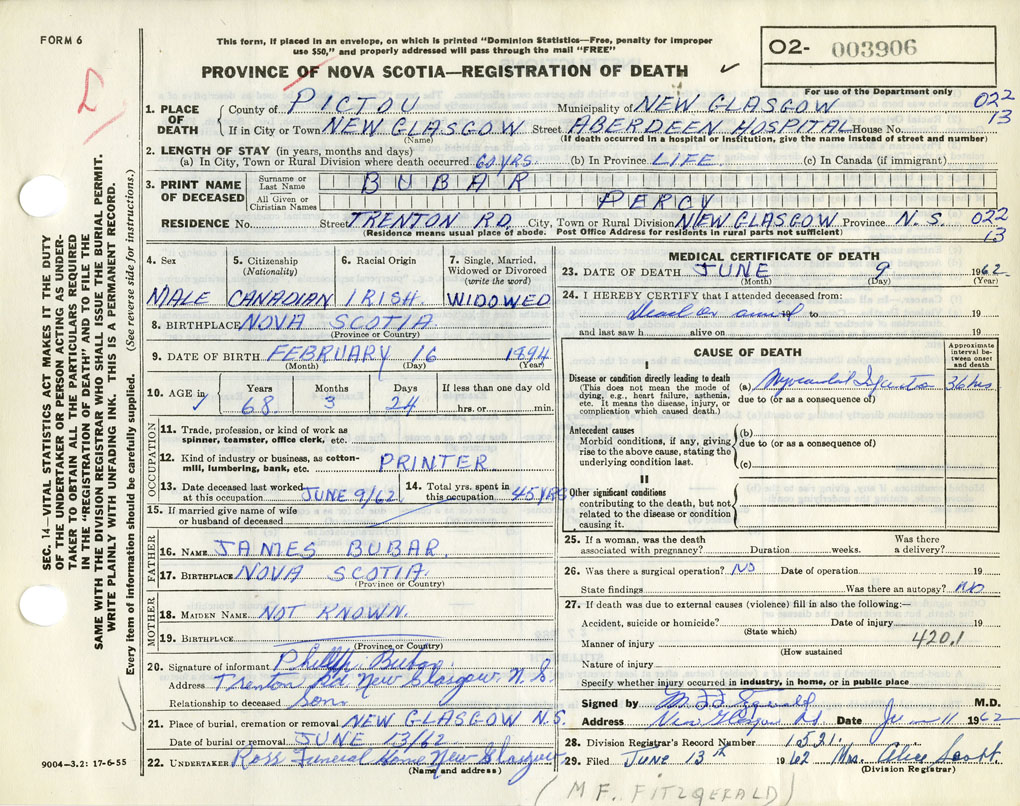 FORM 6
This form, if placed in an envelope, on which is printed "Dominion Statistics—Free, penalty for improper
use $50," and properly addressed will pass through the mail "FREE"
O2- 003906
For use of the Department only
PROVINCE OF NOVA SCOTIA—REGISTRATION OF DEATH
022
13
1. PLACE OF DEATH
County of PICTOU Municipality of NEW GLASGOW
If in City or Town NEW GLASGOW Street ABERDEEN HOSPITAL House No.
(Name) (If death occurred in a hospital or institution, give the name instead of street and number)
2. LENGTH OF STAY (in years, months and days)
(a) In City, Town or Rural Division where death occurred 60 YRS. (b) In Province LIFE. (c) In Canada (if immigrant)
3. PRINT NAME OF DECEASED
Surname or Last Name BUBAR
All Given or Christian Names PERCY
RESIDENCE No. Street TRENTON RD. City, Town or Rural Division NEW GLASGOW Province N.S. 022
(Residence means usual place of abode. Post Office Address for residents in rural parts not sufficient) 13
4. Sex MALE
5. Citizenship (Nationality) CANADIAN
6. Racial Origin IRISH.
7. Single, Married, Widowed or Divorced (write the word) WIDOWED
8. BIRTHPLACE NOVA SCOTIA
(Province or Country)
9. DATE OF BIRTH FEBRUARY 16 1894
(Month) (Day) (Year)
10. AGE in Years 68 Months 3 Days 24 If less than one day old hrs. or min.
OCCUPATION
11. Trade, profession, or kind of work as spinner, teamster, office clerk, etc.
12. Kind of industry or business, as cotton-mill, lumbering, bank, etc. PRINTER
13. Date deceased last worked at this occupation JUNE 9/62
14. Total yrs. spent in this occupation 45 YRS
15. If married give name of wife or husband of deceased
FATHER
16. NAME JAMES BUBAR.
17. BIRTHPLACE NOVA SCOTIA.
(Province or Country)
MOTHER
18. MAIDEN NAME NOT KNOWN.
19. BIRTHPLACE
(Province or Country)
20. Signature of informant Bubar.
Address Trenton Rd New Glasgow, N.S.
Relationship to deceased Son
21. Place of burial, cremation or removal NEW GLASGOW N.S.
Date of burial or removal JUNE 13/62
22. UNDERTAKER Ross Funeral Home New Glasgow
(Name and address)
MEDICAL CERTIFICATE OF DEATH
23. DATE OF DEATH JUNE 9 1962
(Month) (Day) (Year)
24. I HEREBY CERTIFY that I attended deceased from:
Dead on arrival 19 to 19
and last saw h alive on 19
CAUSE OF DEATH
Approximate interval between onset and death
I
Disease or condition directly leading to death
(This does not mean the mode of dying, e.g., heart failure, asthenia, etc. It means the disease, injury, or complication which caused death.)
(a) Myocardial Infarction 36 hrs
due to (or as a consequence of)
Antecedent causes
Morbid conditions, if any, giving rise to the above cause, stating the underlying condition last.
(b)
due to (or as a consequence of)
(c)
II
Other significant conditions
contributing to the death, but not related to the disease or condition causing it.
25. If a woman, was the death associated with pregnancy? Duration weeks. Was there a delivery?
26. Was there a surgical operation? NO Date of operation 19
State findings Was there an autopsy? NO
27. If death was due to external causes (violence) fill in also the following:—
Accident, suicide or homicide? Date of injury 19
(State which)
Manner of injury 420.1
(How sustained
Nature of injury
Specify whether injury occurred in industry, in home, or in public place
Signed by M.D.
Address New Glasgow N.S. Date June 11 1962
28. Division Registrar's Record Number 1521.
29. Filed June 13th 1962 Mrs. Alice Scott.
(Division Registrar)
(M F. FITZGERALD)
SEC. 14—VITAL STATISTICS ACT MAKES IT THE DUTY
OF THE UNDERTAKER OR PERSON ACTING AS UNDER-
TAKER TO OBTAIN ALL THE PARTICULARS REQUIRED
IN THE "REGISTRATION OF DEATH" AND TO FILE THE
SAME WITH THE DIVISION REGISTRAR WHO SHALL ISSUE THE BURIAL PERMIT.
WRITE PLAINLY WITH UNFADING INK. THIS IS A PERMANENT RECORD.
Every item of information should be carefully supplied. (See reverse side for instructions.)
9004—3.2: 17-6-55